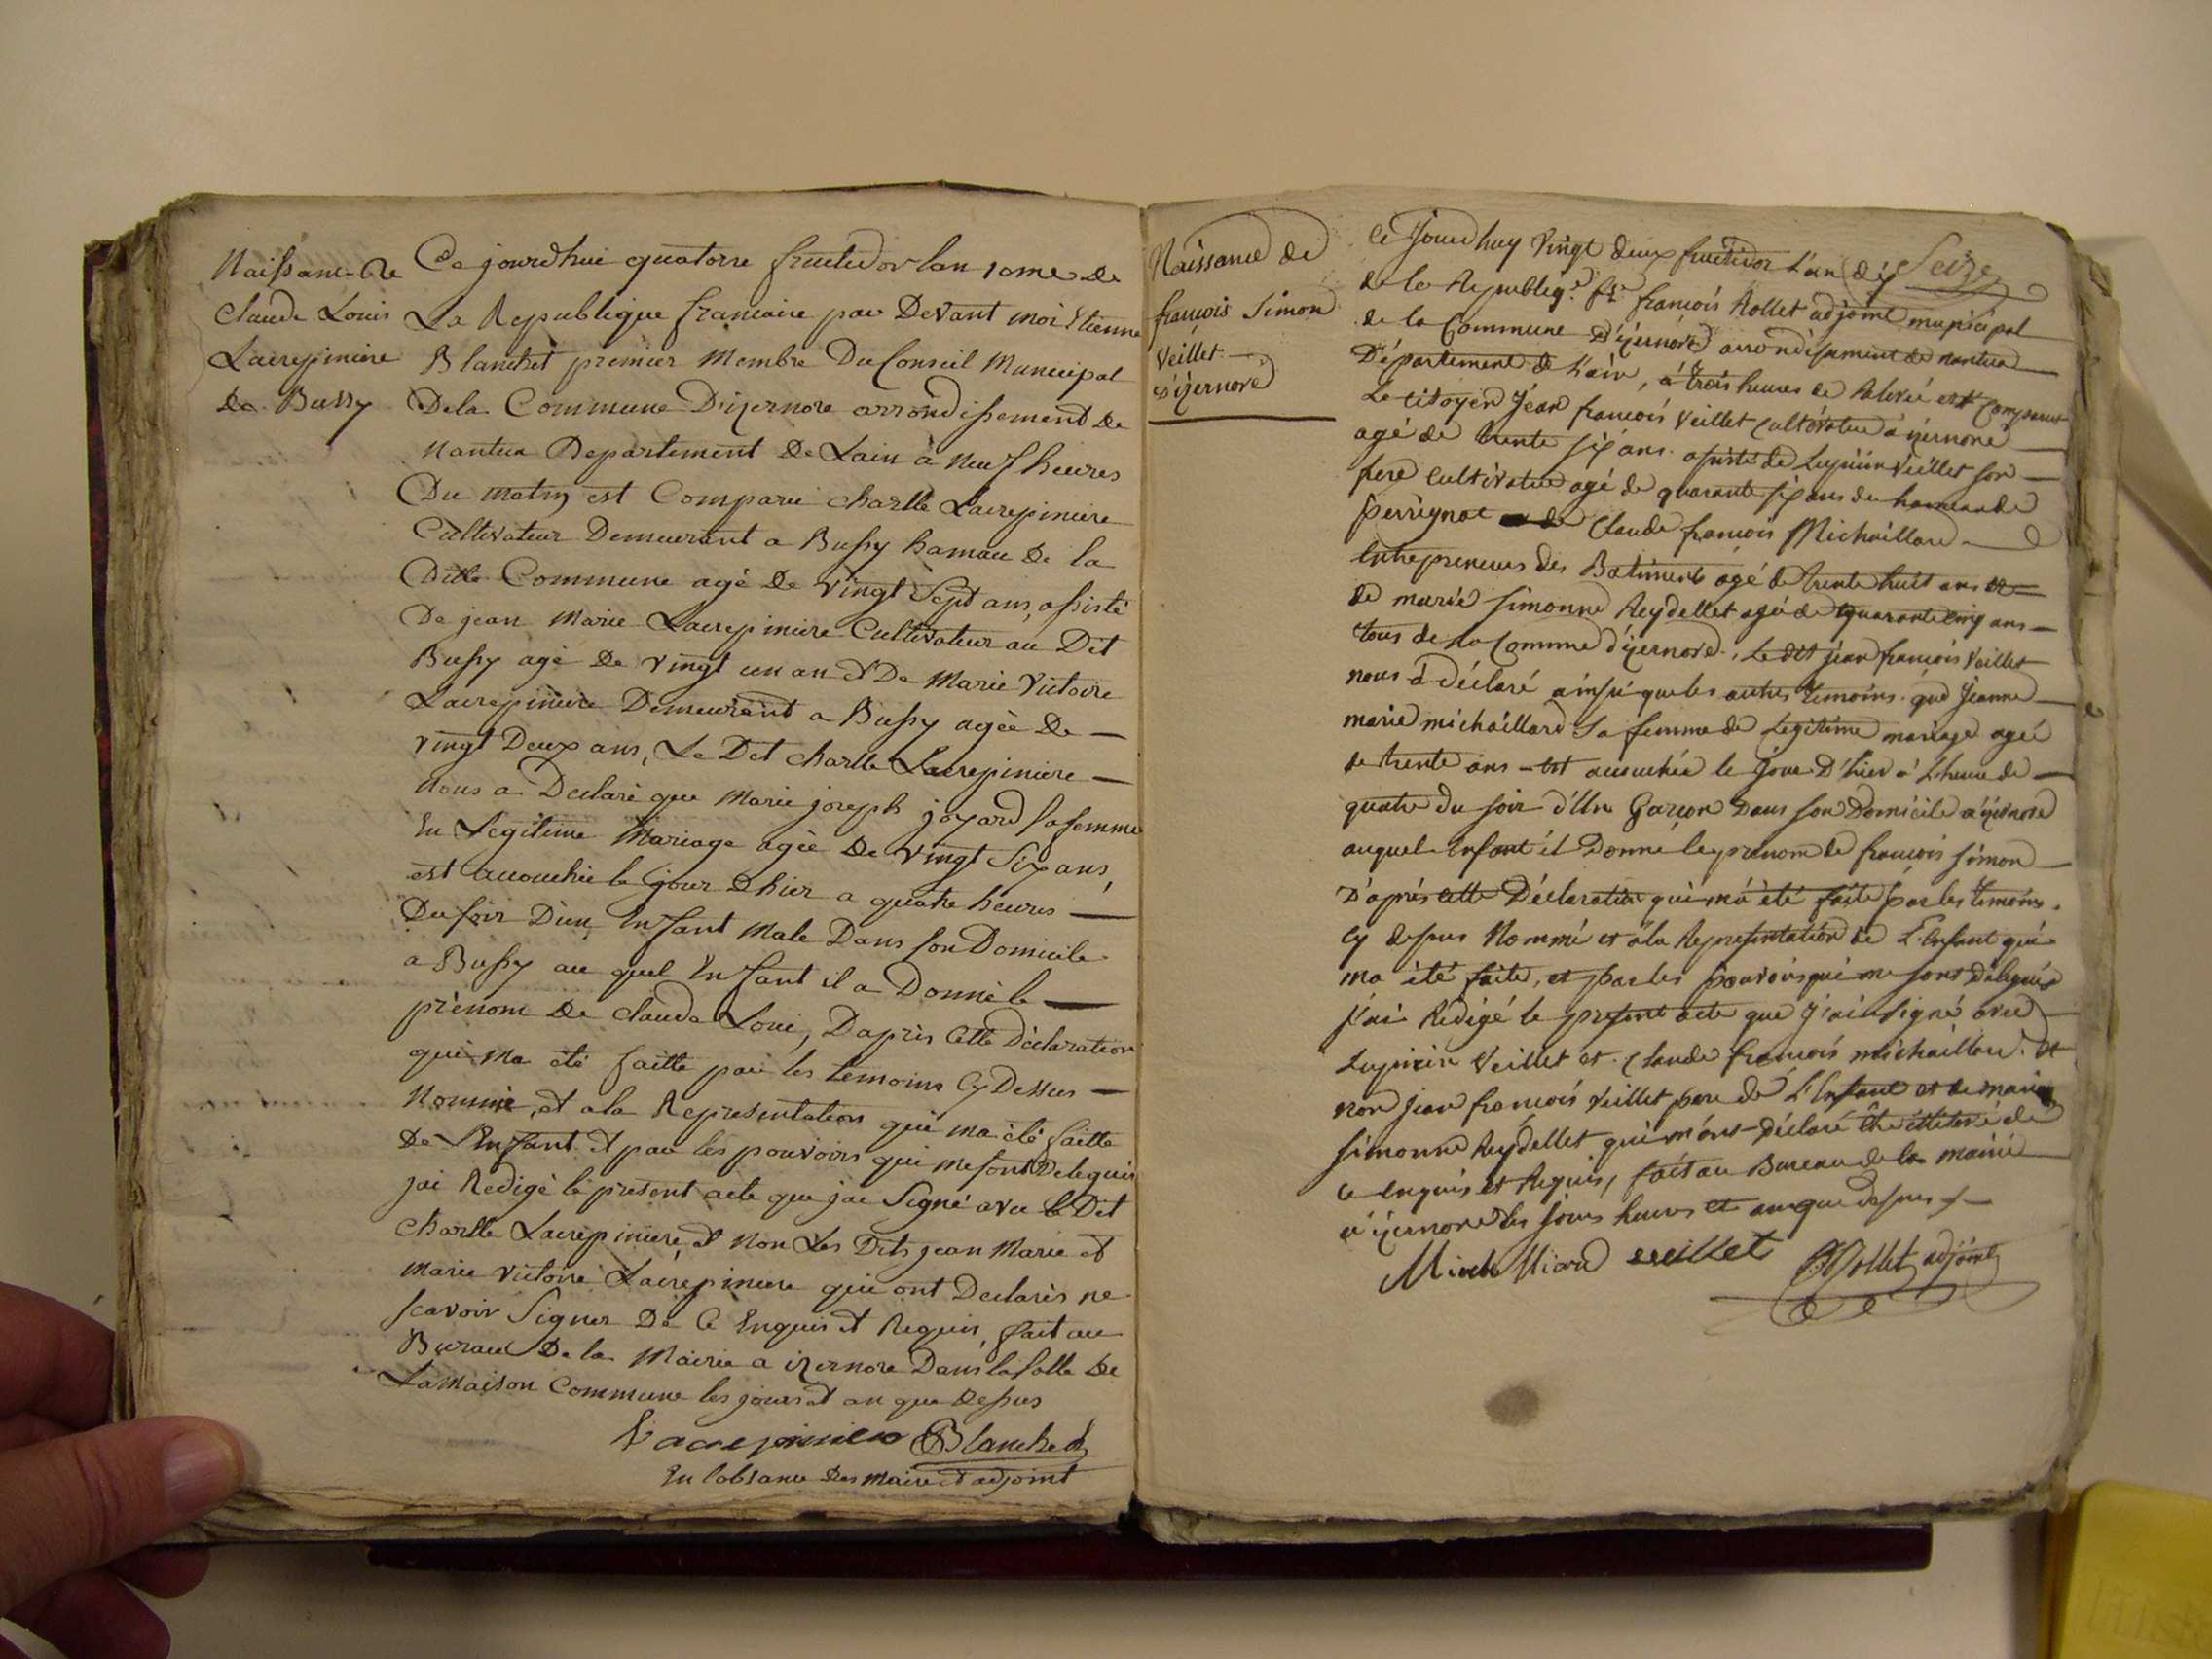 Naissance De
Claude Louis
Lacrepiniere
De Bussy
Ce jourdhui quatorze fructidor lan 10me De
La Republique francaise par Devant moi Etienne
Blanchet premier Membre Du Conseil Municipal
De la Commune D'izernore arrondissement De
Nantua Departement De Lain à Neuf heures
Du matin est Comparu charlle Lacrepiniere
Cultivateur Demeurant a Bussy hamau De la
Ditte Commune agé De vingt Sept ans, assisté
De jean Marie Lacrepiniere Cultivateur au Dit
Bussy agé De vingt un an et De Marie Victoire
Lacrepiniere Demeurant a Bussy agée De —
vingt Deux ans, Le Dit charlle Lacrepiniere —
Nous a Declaré que Marie joseph joyard sa femme
En Legitime Mariage agée De vingt Six ans,
est accouchée le jour Dhier a quatre heures —
Du soir D'un Enfant Male Dans son Domicile
a Bussy au quel Enfant il a Donné le —
prénom De claude Loui, Daprès Cette Déclaration
qui ma été faitte par les temoins Cy Dessus —
Nommé, et a la Representation qui ma été faitte
De L'Enfant et par les pouvoirs qui me sont Delegués
jai Redigé le present acte que jai Signé avec le Dit
Charlle Lacrepiniere, et Non Les Dits jean Marie et
Marie Victoire Lacrepiniere qui ont Declarés ne
scavoir Signer De Ce Enquis et Requis, fait au
Bureau De la Mairie a izernore Dans la salle De
La Maison Commune les jours et an que Dessus
Lacrepiniere Blanchet
En labsance Des maire et adjoint
Naissance de
françois Simon
Veillet —
D'izernore
Seize
Ce Jourdhuy vingt deux fructidor L'an dix
de la Republiq.e fse françois Rollet adjoint municipal
de la Commune D'izernore arrondissement de nantua
Département de L'ain, à trois heures de Relevé est Comparu
Le citoyen Jean françois Veillet cultivateur à izernore
agé de trente six ans. assisté de Lupicin Veillet son —
frere Cultivateur agé de quarante six ans du hameau de
perrignat de Claude françois Michaillard —
Entrepreneur des Batiments agé de trente huit ans et
de marie Simonne Reydellet agé de quarante cinq ans —
tous de La Commune d'izernore., Le dit jean françois Veillet
nous à Déclaré ainsi que les autres temoins. que Jeanne
marie michaillard Sa femme de Legitime mariage agée
de trente ans — est accouchée le Jour D'hier à L'heure de —
quatre du soir d'Un Garçon Dans son Domicile à izernore
auquel Enfant il Donne le prenom de françois Simon —
D'après cette Déclaration qui m'a été faite par les temoins.
Cy dessus Nommé et à la Representation de L'Enfant qui
ma été faite, et par les pouvoirs qui me sont délegués
J'ai Redigé le present acte que J'ai Signé avec
Lupicin Veillet et Claude françois michaillard. et
non jean françois Veillet pere de L'Enfant et de marie
Simonne Reydellet qui m'ont déclaré être illiteré de
ce Enquis et Requis, fait au Bureau de la mairie
à izernore les jours heures et an que dessus
Michalliard veillet Rollet adjoint